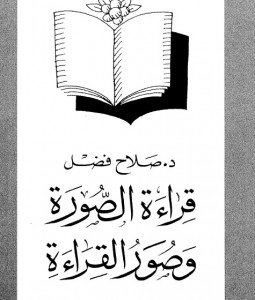 د. صلاح فضل
قِراءَة الصُّورَة
وَصُوَرُ القِراءَةِ